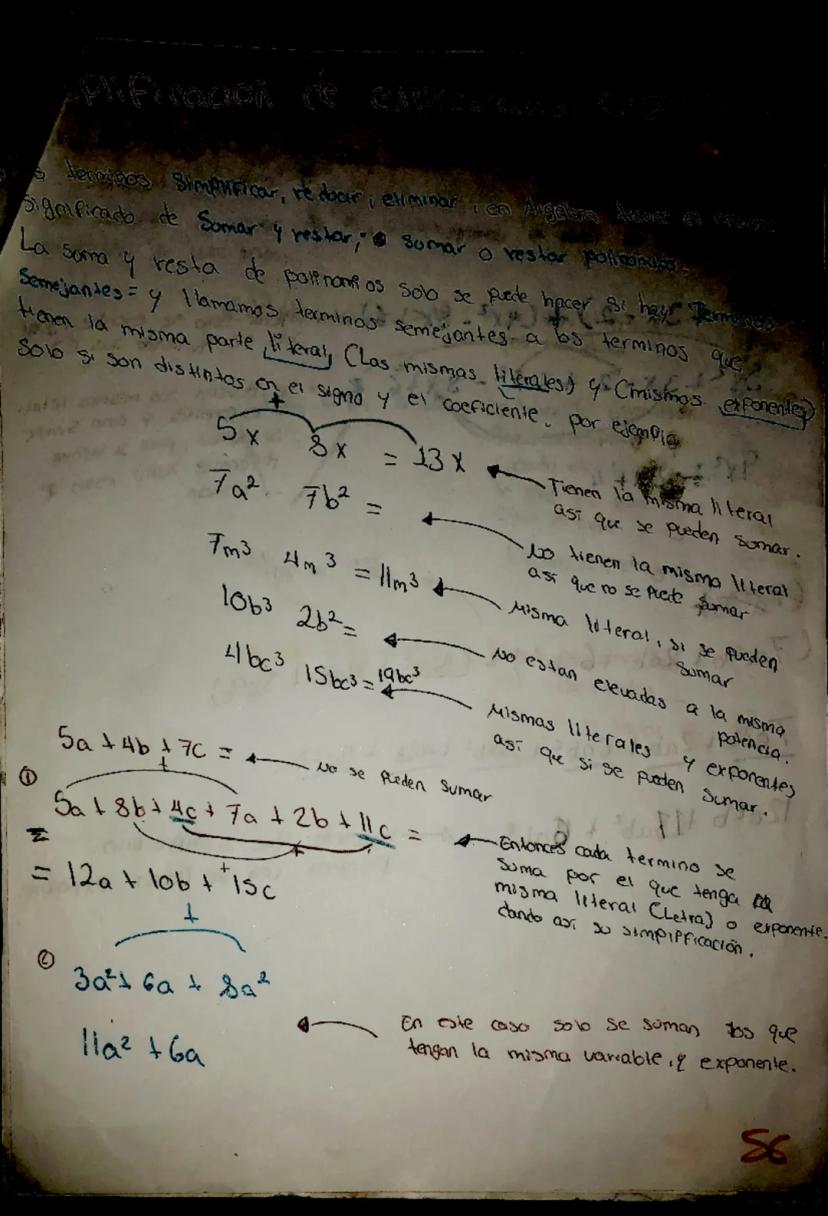 plificación de expresiones
s terminos simplificar, reducir, eliminar, en Algebra tienen el mismo
significado de Sumar y restar, o sumar o restar polinomios.
La suma y resta de polinomios solo se puede hacer si hay Terminos
Semejantes = y llamamos terminos semejantes a los terminos que
tienen la misma parte literal, (Las mismas literales) y (mismos exponentes)
Solo si son distintos en el signo y el coeficiente. por ejemplo
+
5x 8x = 13x
Tienen la misma literal
así que se pueden sumar.
7a² 7b² =
No tienen la misma literal
así que no se puede sumar
7m³ 4m³ = 11m³
Misma literal, si se pueden
sumar
10b³ 2b² =
No estan elevadas a la misma
potencia.
4bc³ 15bc³ = 19bc³
Mismas literales y exponentes
así que si se pueden sumar.
5a + 4b + 7c =
No se pueden sumar
① +
5a + 8b + 4c + 7a + 2b + 11c =
+
+
Entonces cada termino se
suma por el que tenga la
misma literal (Letra) o exponente.
dando así su simplificación.
= 12a + 10b + 15c
② +
3a² + 6a + 8a²
11a² + 6a
En este caso solo se suman los que
tengan la misma variable, y exponente.
56